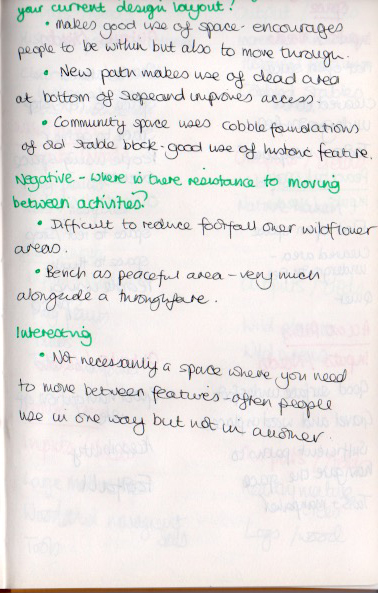 your current design layout?
• makes good use of space- encourages
people to be within but also to move through.
• New path makes use of dead area
at bottom of slope and improves access.
• Community space uses cobble foundations
of old stable block - good use of historic feature.
Negative - where is there resistance to moving
between activities?
• Difficult to reduce footfall over wildflower
areas.
• Bench as peaceful area - very much
alongside a throughfare.
Interesting
• Not necessarily a space where you need
to move between features - often people
use in one way but not in another.